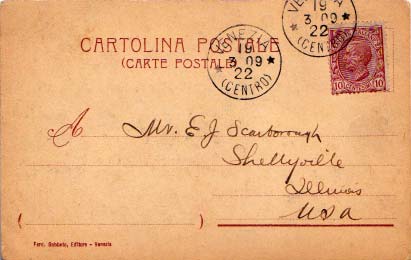 VENEZIA
19
3 09
22
(CENTRO)
VENEZIA
19
3 09
22
(CENTRO)
CARTOLINA POSTALE
(CARTE POSTALE)
10 10
A Mr. E J Scarborough
Shellyville
Illinois
USA
( )
Ferd. Gobbato, Editore - Venezia